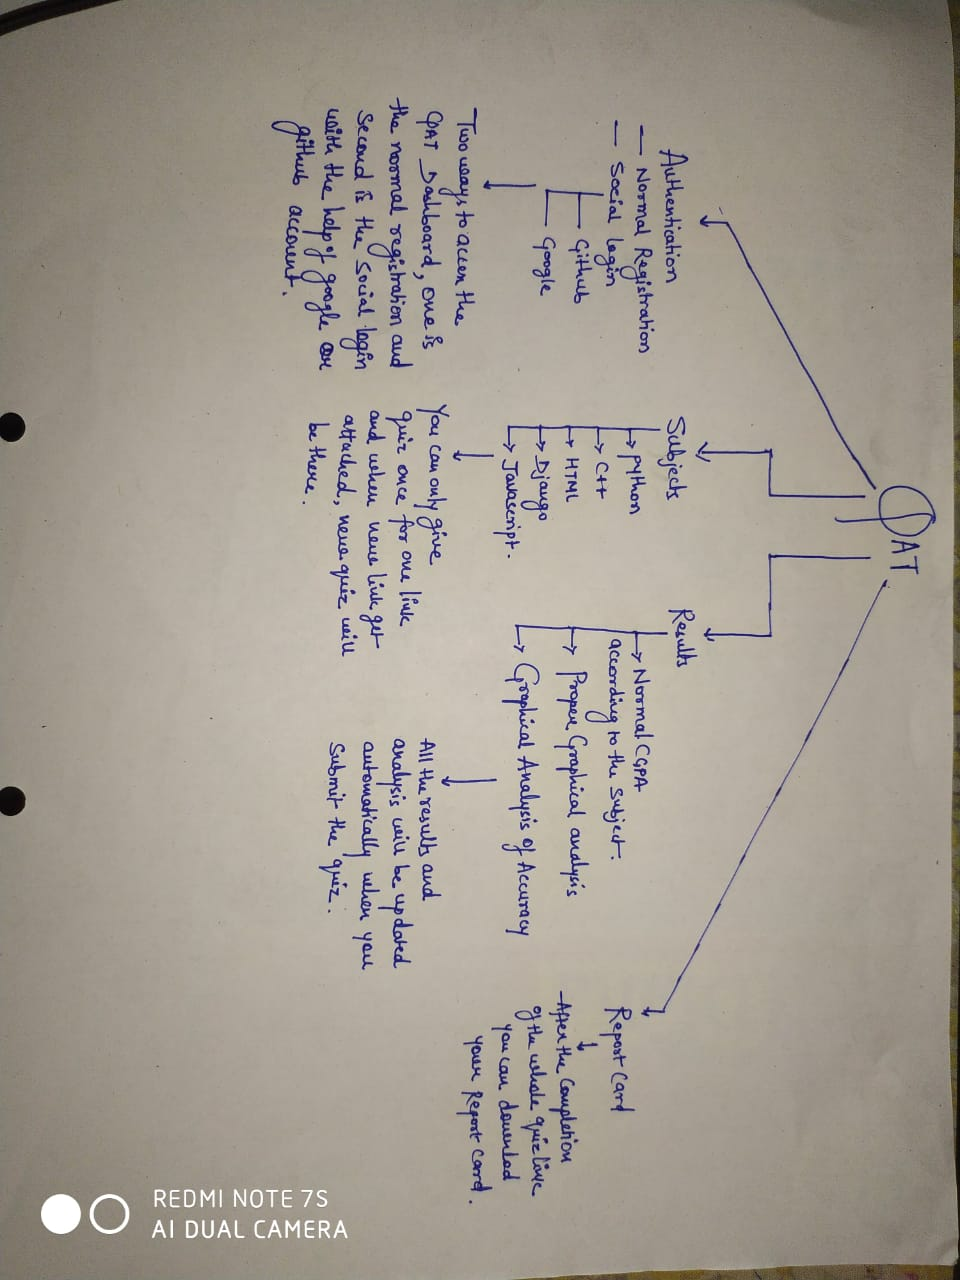 QAT
Authentication
— Normal Registration
— Social login
Github
Google
Two ways to access the
QAT Dashboard, one is
the normal registration and
second is the social login
with the help of google or
github account.
Subjects
python
C++
HTML
Django
Javascript.
You can only give
quiz once for one link
and when new link get
attached, new quiz will
be there.
Results
Normal CGPA
according to the subject.
Proper Graphical analysis
Graphical Analysis of Accuracy
All the results and
analysis will be updated
automatically when you
submit the quiz.
Report Card
-After the Completion
of the whole quiz
you can download
your Report Card.
REDMI NOTE 7S
AI DUAL CAMERA